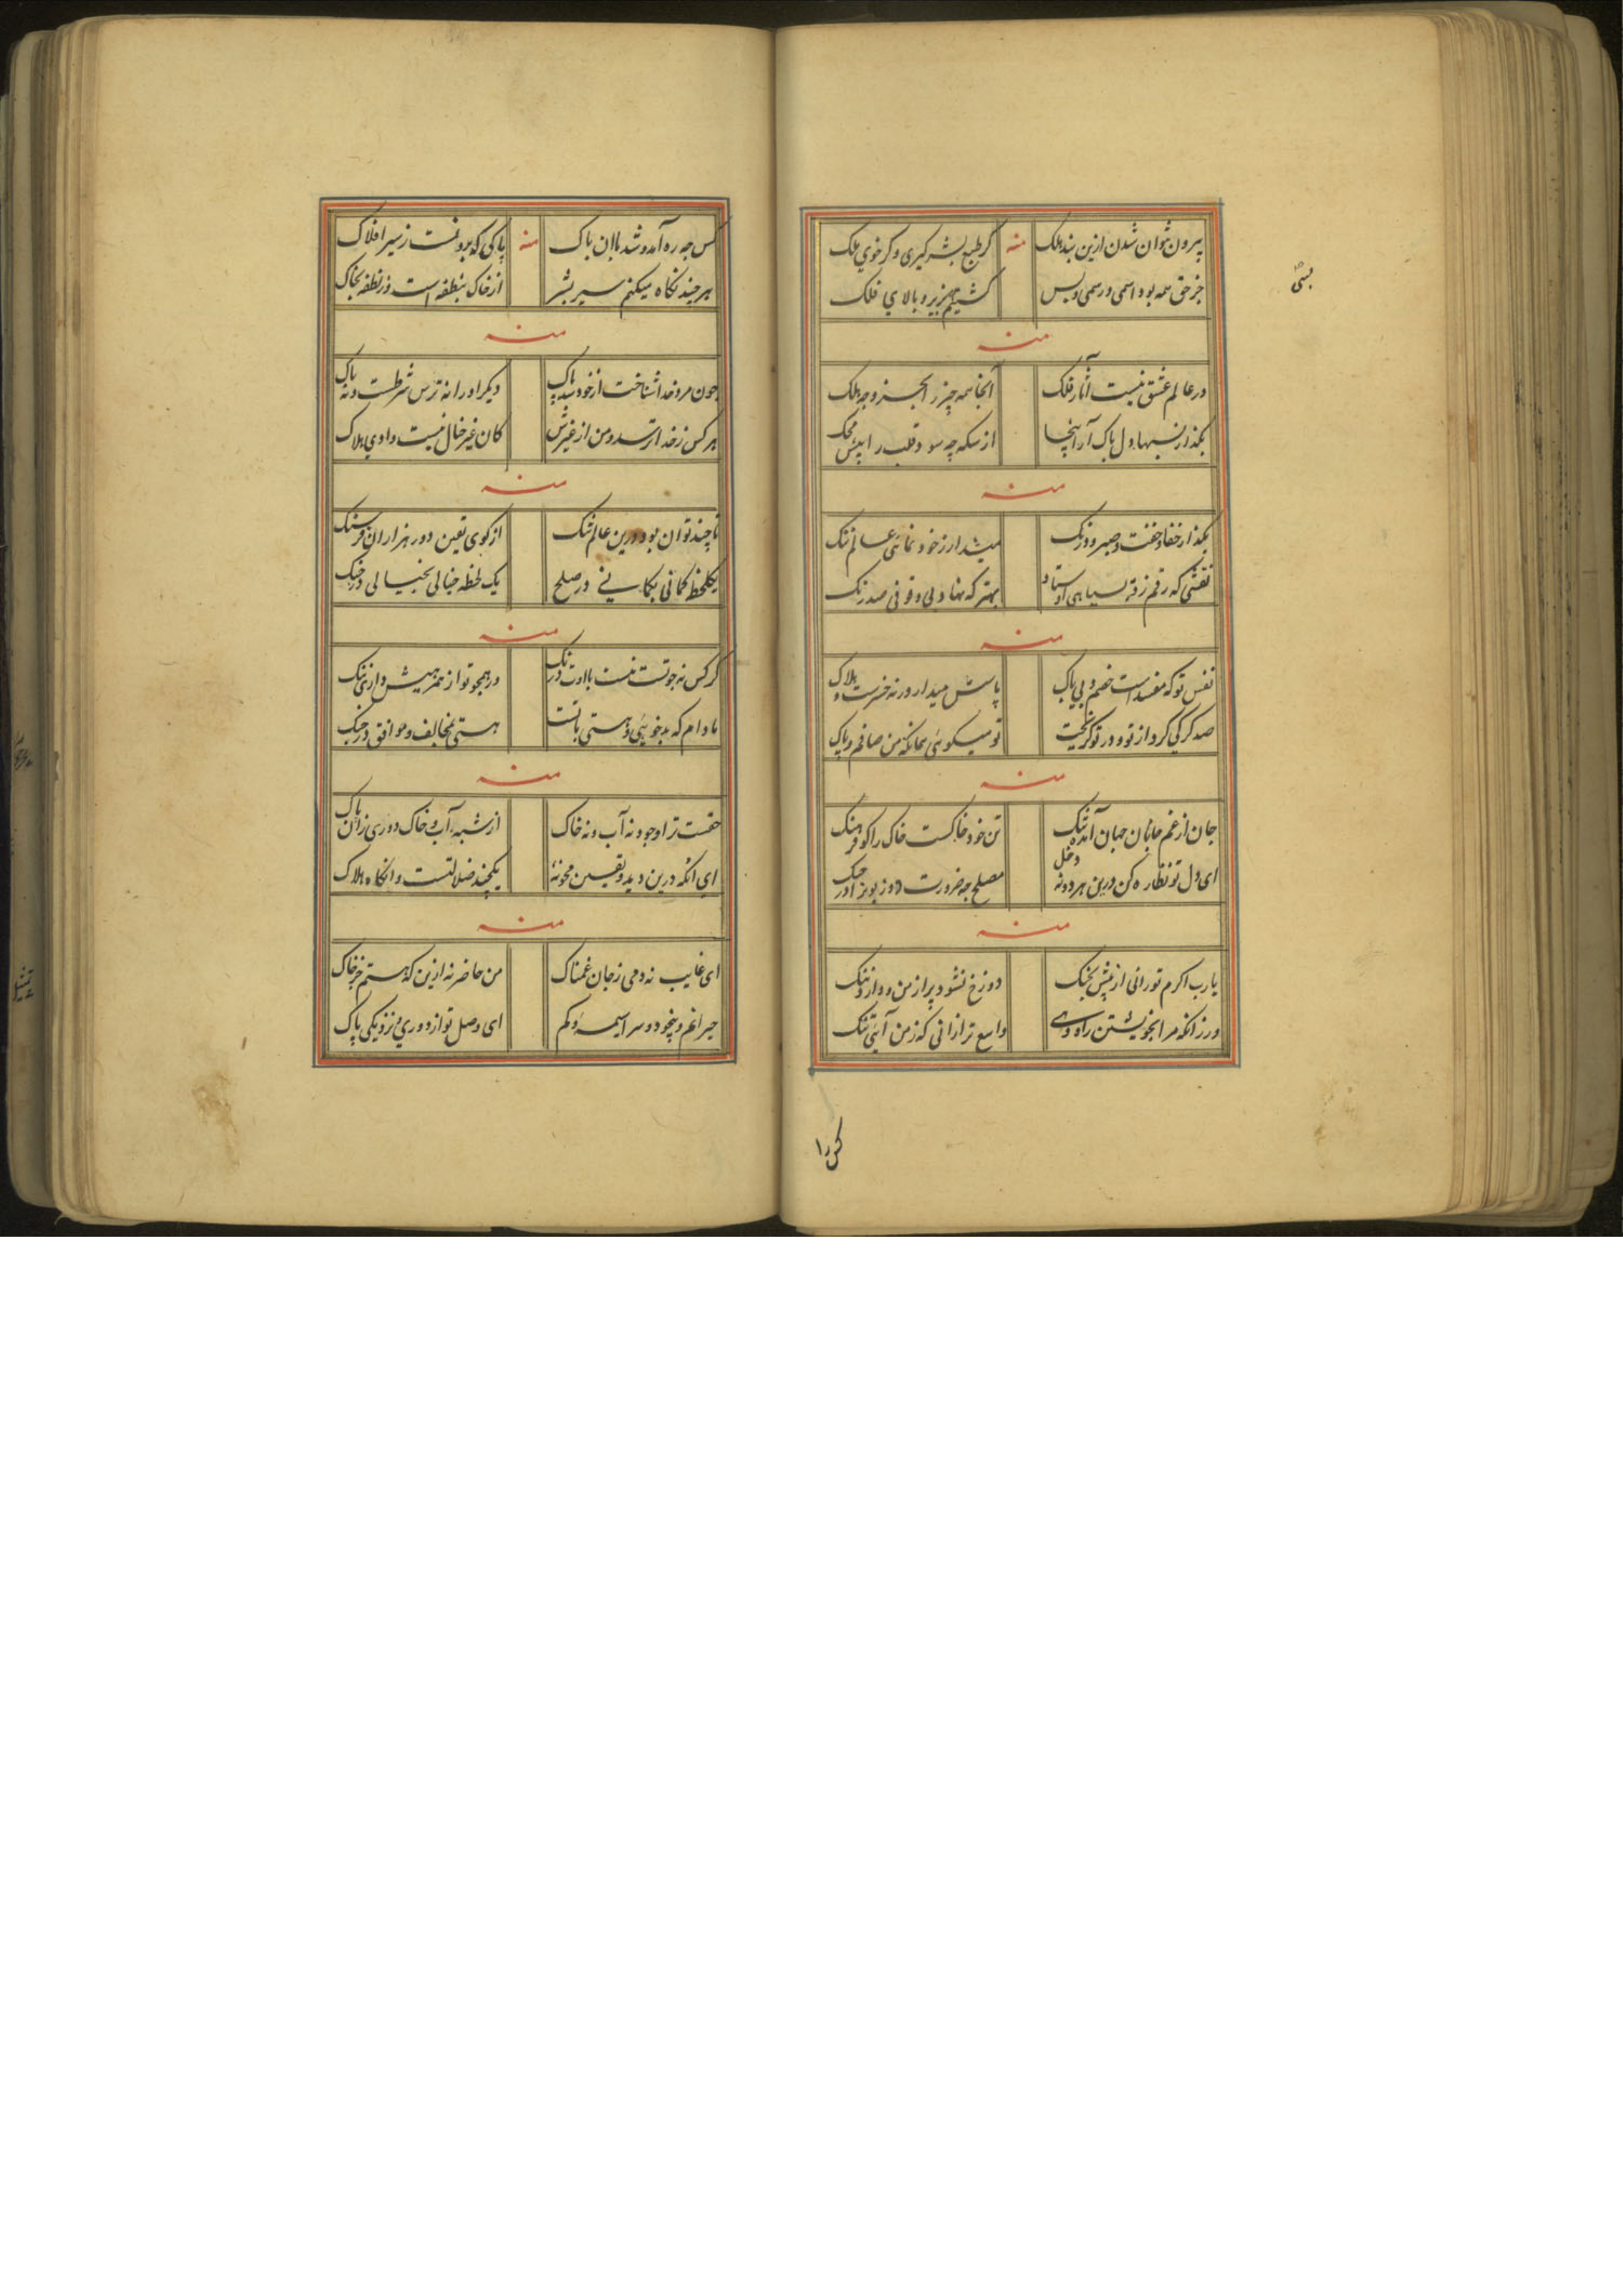 بیرون نتوان شدن ازین بند ملک منه کر طبع بشر کیری و کر خوی ملک
جز حق همه بود اسمی و رسمی و بس کشتیم همه زیر و بالای فلک
منه
در عالم عشق نیست آثار فلک آنجا همه چیز
بکذار نسبها و دل پاک آر اینجا از سکه چه سود قلب را پیش محک
منه
بکذار و خفت و صبر و درنک میدار ز خود نمائی عالم ننک
نقشی که رقم زد سیاهی استاد بهتر که نهاد بی وقوفی صد رنک
منه
نفس تو که مفسد است خصم و بی باک پاسش میدار ورنه خسرت و هلاک
صد کرکی کرد از تو و در تو کریخت تو میکوئی همانکه من صافم و پاک
منه
جان از غم جانان جهان آمد تنک تن خود خاکست خاک را کو فرهنک
ای دل تو نظاره کن درین هر دو نه دخل مصلح چه ضرورت در جنک
منه
یا رب اکرم تو رانی از پیش بخنک دوزخ نشود پر از من و دارد ننک
ور زانکه مرا بخویشتن راه دهی واسع تر ازانی که ز من آئی تنک
کس را
کس چه ره آمد و شد باان پاک منه پاکی که برونست ز سیر افلاک
هر چند نکاه میکنم سیر بشر از خاک بنطفه است وز نطفه بخاک
منه
چون مرد خدا شناخت از خود شد پاک دیکر او را نه ترس شرطست و نه باک
هر کس ز خدا ترسد و من از غیرش کان غیر خیال نیست وادی هلاک
منه
تا چند توان بود درین عالم تنک از کوی یقین دور هزاران فرسنک
یکلحظه کمانی بکمانی در صلح یک لحظه خیالی بخیالی در جنک
منه
کر کس نه چو تست نیست با اوت درنک ور همچو تو از همرهیش داری ننک
مادام که بدخوئی و هستی با تست هستی بمخالف و موافق در جنک
منه
حقست ترا وجود نه آب و نه خاک از شبه آب و خاک دوری زان پاک
ای آنکه درین دید و یقین محو نهٔ یکچند ضلالتست و آنکاه هلاک
منه
ای غایب نه دمی ز جان غمناک من حاضر نه ازین که هستم جز خاک
حیرانم و بیخود و سراسیمه و کم ای وصل تو از دوری و نزدیکی پاک